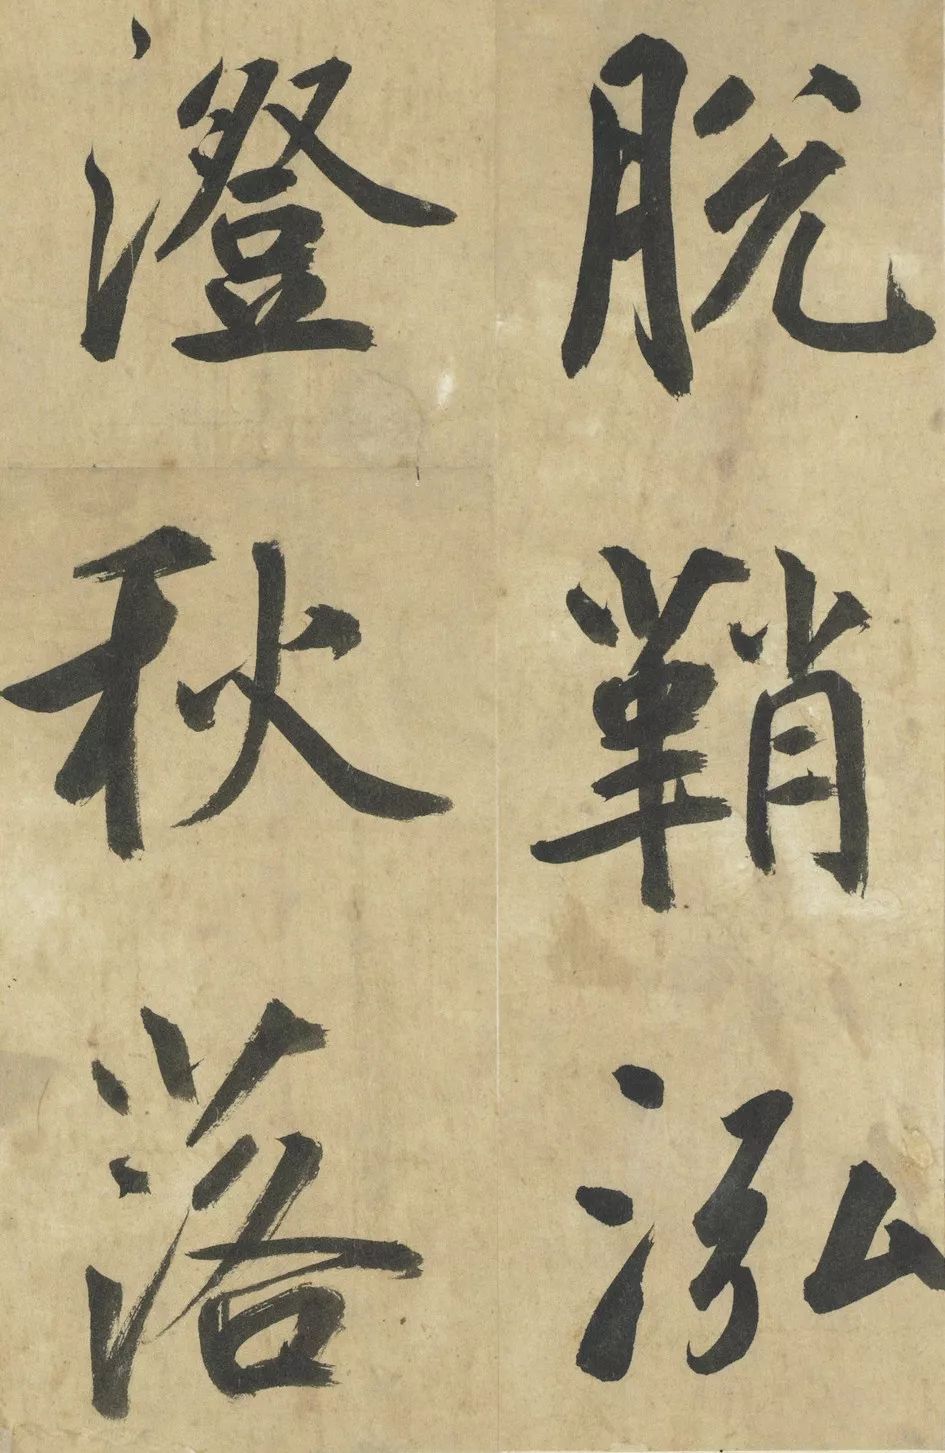 脫鞘泓
澄秋落